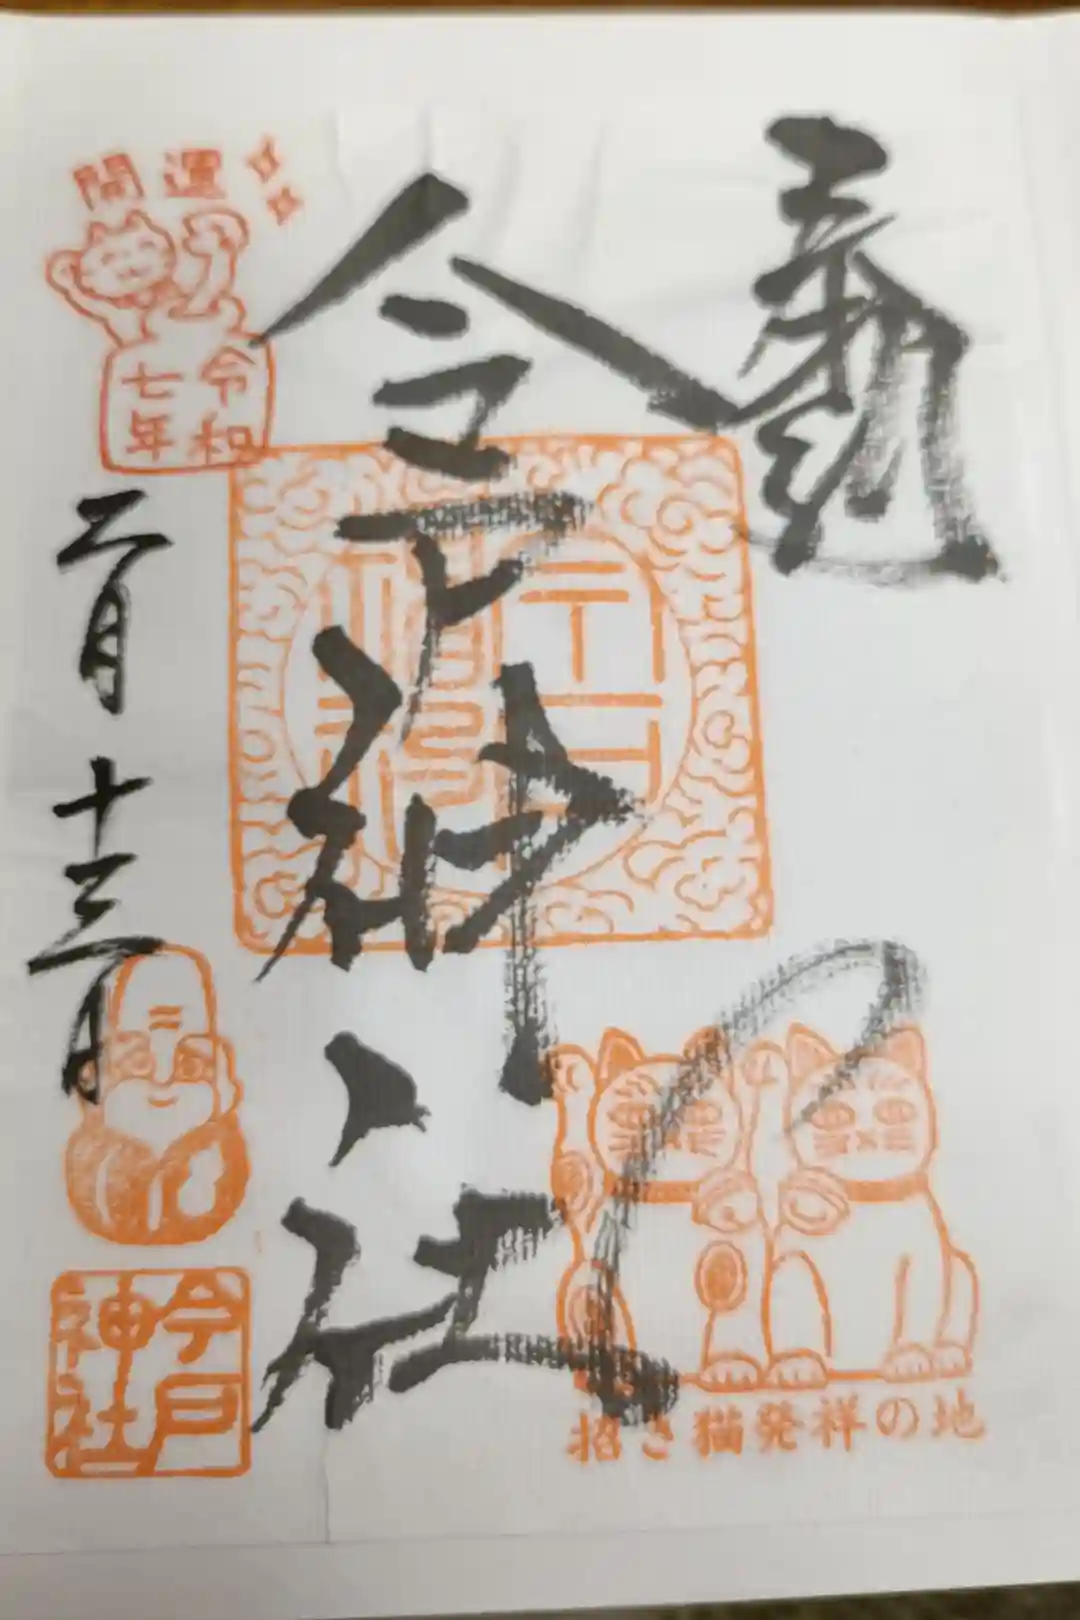 奉拝
今戸神社
開運
令和
七年
二月十三日
招き猫発祥の地
今戸
神社